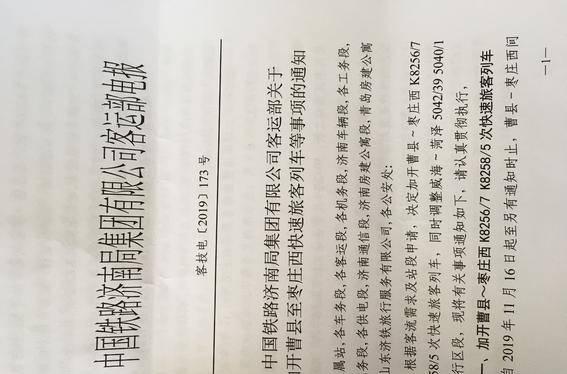 中国铁路济南局集团有限公司客运部电报
客技电〔2019〕173号
中国铁路济南局集团有限公司客运部关于
加开曹县至枣庄西快速旅客列车等事项的通知
属站，各车务段，各客运段，各机务段，济南车辆段，各工务段，
务段，各供电段，济南通信段，济南房建公寓段，青岛房建公寓
山东济铁旅行服务有限公司，各公安处：
根据客流需求及站段申请，决定加开曹县～枣庄西 K8256/7
58/5 次快速旅客列车，同时调整威海～菏泽 5042/39 5040/1
行区段，现将有关事项通知如下，请认真贯彻执行，
一、加开曹县～枣庄西 K8256/7 K8258/5 次快速旅客列车
自 2019 年 11 月 16 日起至另有通知时止，曹县－枣庄西间
—1—